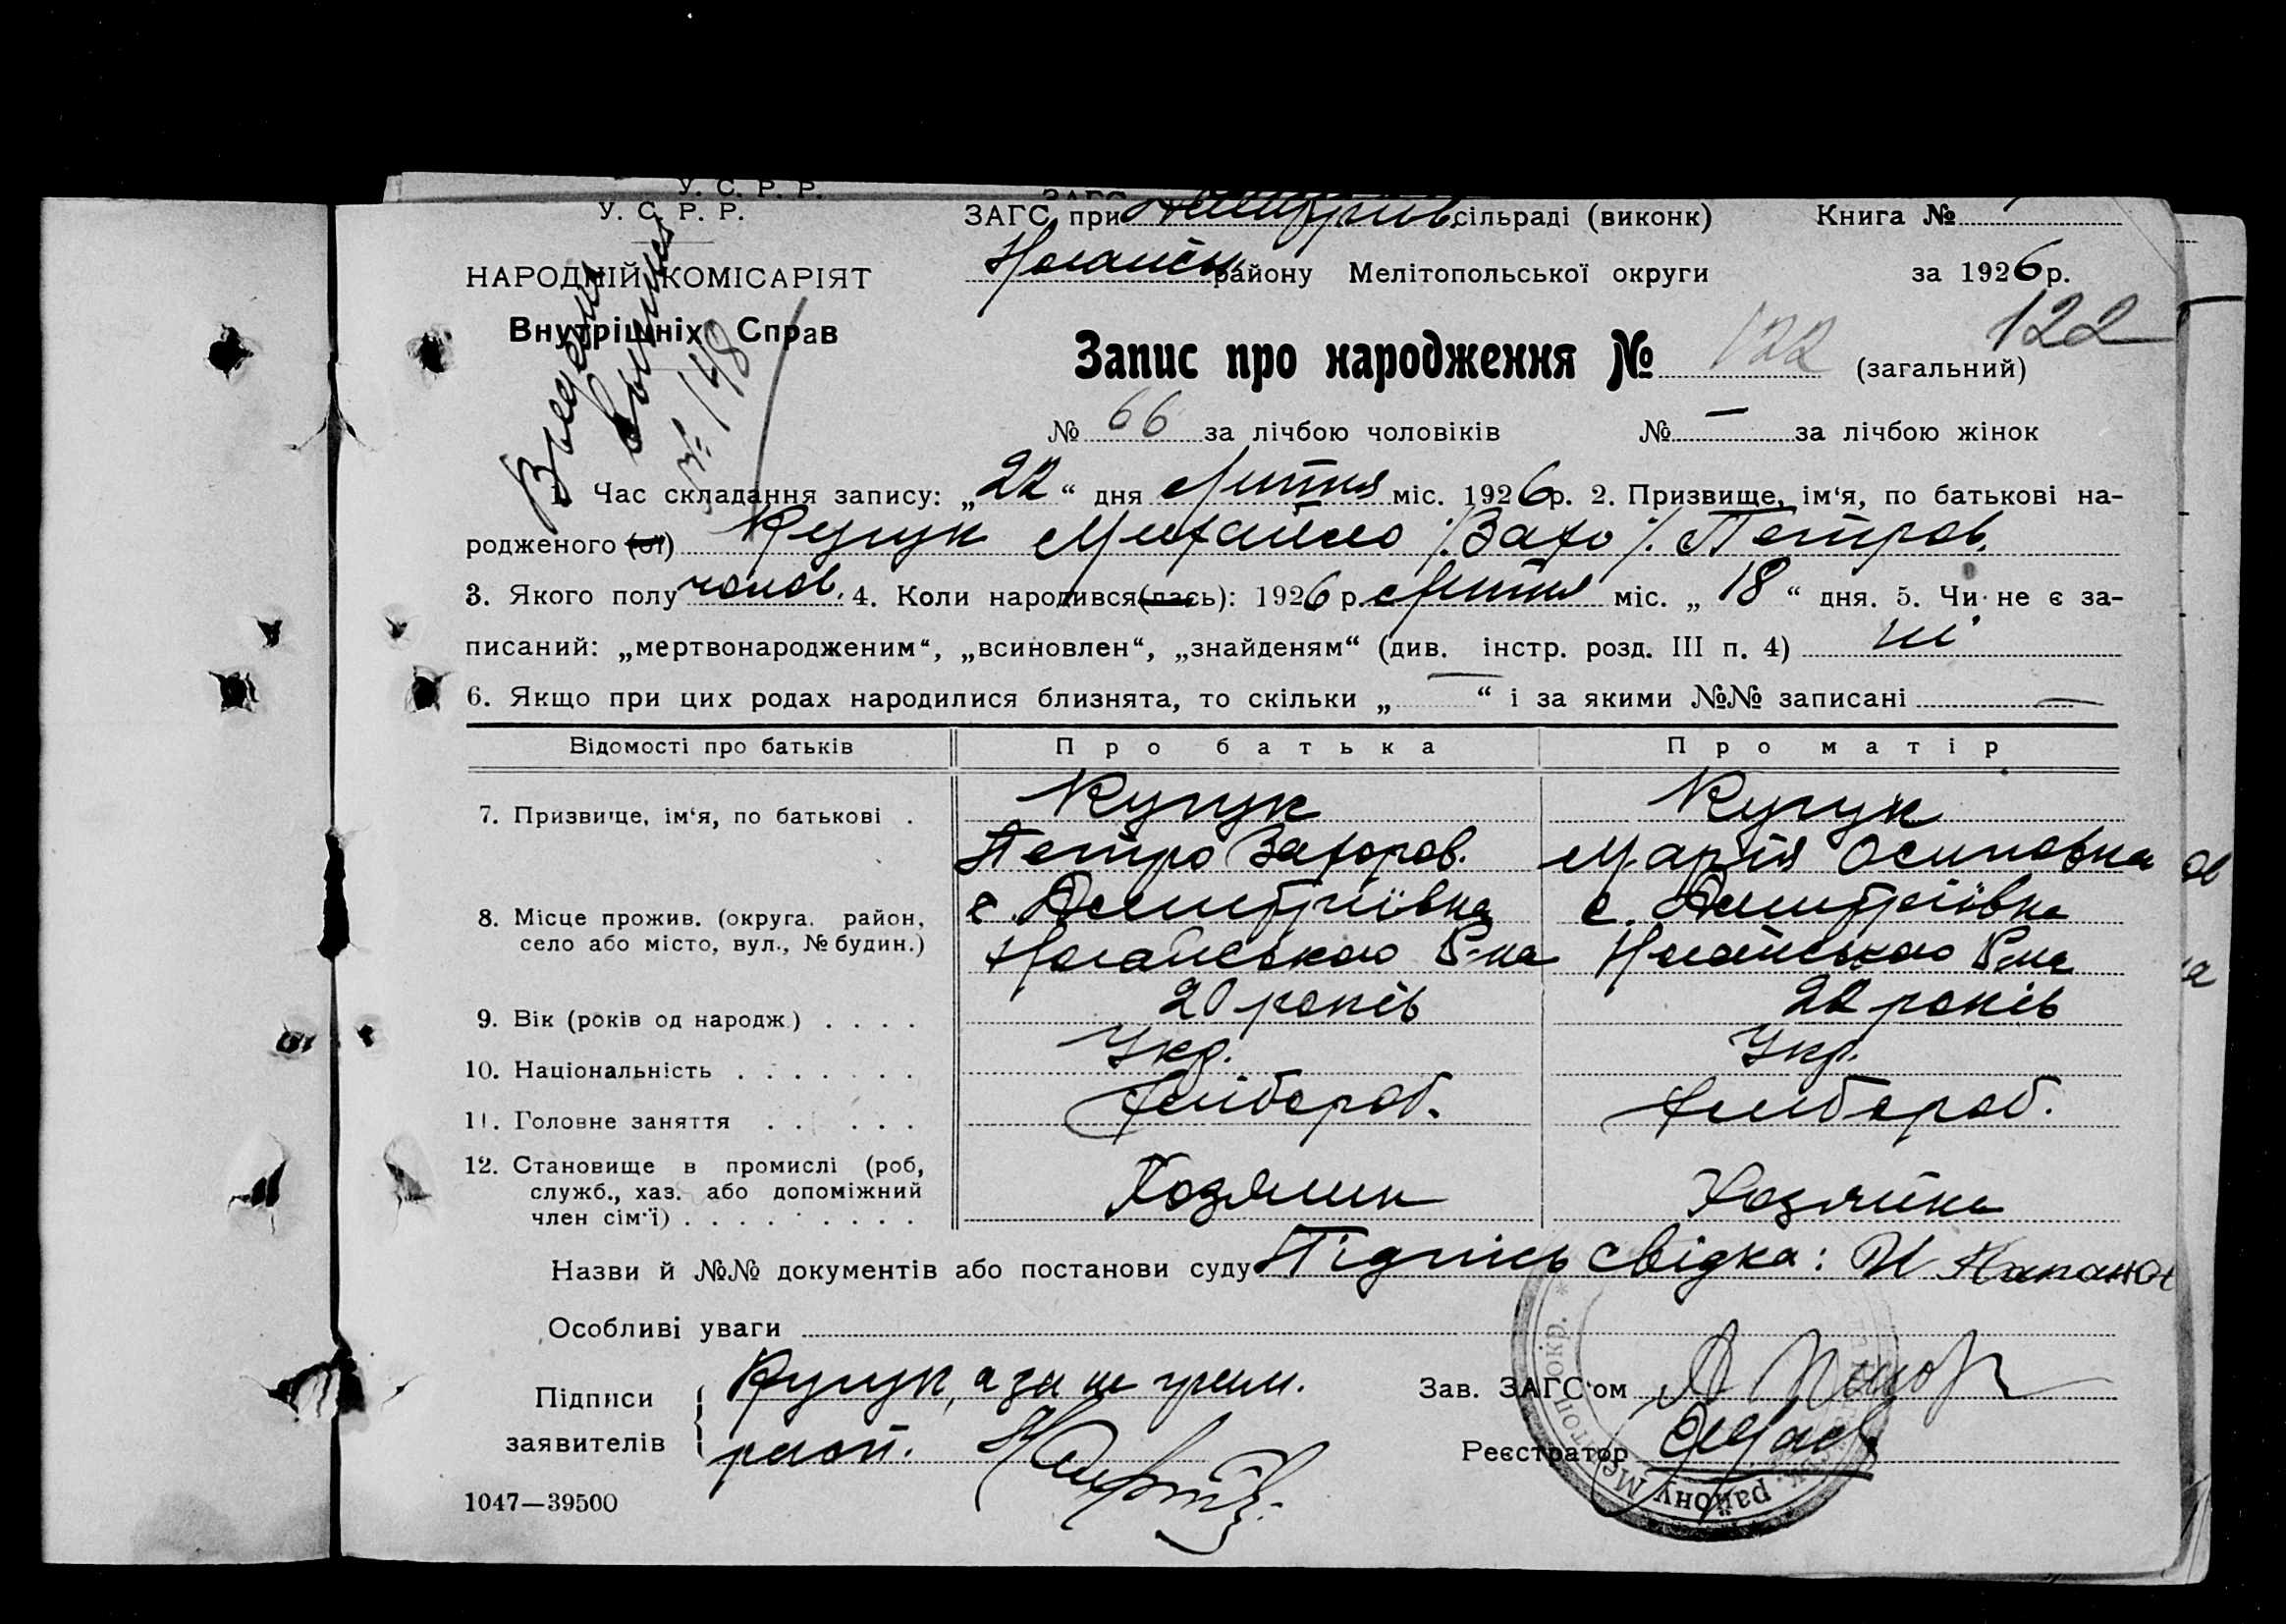 У. С. Р. Р.
У. С. Р. Р.
ЗАГС при Дмитрів. сільраді (виконк) Книга №
НАРОДНІЙ КОМІСАРІЯТ
Ногайськ району Мелітопольської округи за 1926 р.
Внутрішніх Справ
№ 148
Запис про народження № 122 (загальний) 122
№ 66 за лічбою чоловіків № — за лічбою жінок
1. Час складання запису: „22“ дня Лютня міс. 1926 р. 2. Призвище, ім‘я, по батькові на-
родженого (ої) Кучук Михайло /: Захо :/ Петров.
3. Якого полу чолов. 4. Коли народився(лась): 1926 р. Лютня міс. „18“ дня. 5. Чи не є за-
писаний: „мертвонародженим“, „всиновлен“, „знайденям“ (див. інстр. розд. III п. 4) ні
6. Якщо при цих родах народилися близнята, то скільки „—“ і за якими №№ записані —
Відомості про батьків Про батька Про матір
7. Призвище, ім‘я, по батькові . Кучук Кучук
Петро Захоров. Марія Осиповна
8. Місце прожив. (округа. район, с. Дмитріївка с. Дмитріївка
село або місто, вул., № будин.) Ногайського Р-на Ногайського Р-на
9. Вік (років од народж.) . . . . 20 років 20 років
10. Національність . . . . . . . Укр. Укр.
11. Головне заняття . . . . . . Хлібороб. Хлібороб.
12. Становище в промислі (роб,
служб., хаз. або допоміжний Хозяин Хозяйка
член сім‘ї) . . . . . . . . .
Назви й №№ документів або постанови суду Підпись свідка:
Особливі уваги
Підписи Кучук, а за не грам.
заявителів расп.
Зав. ЗАГС‘ом
Реєстратор
району Мелітопол. окр.
1047—39500